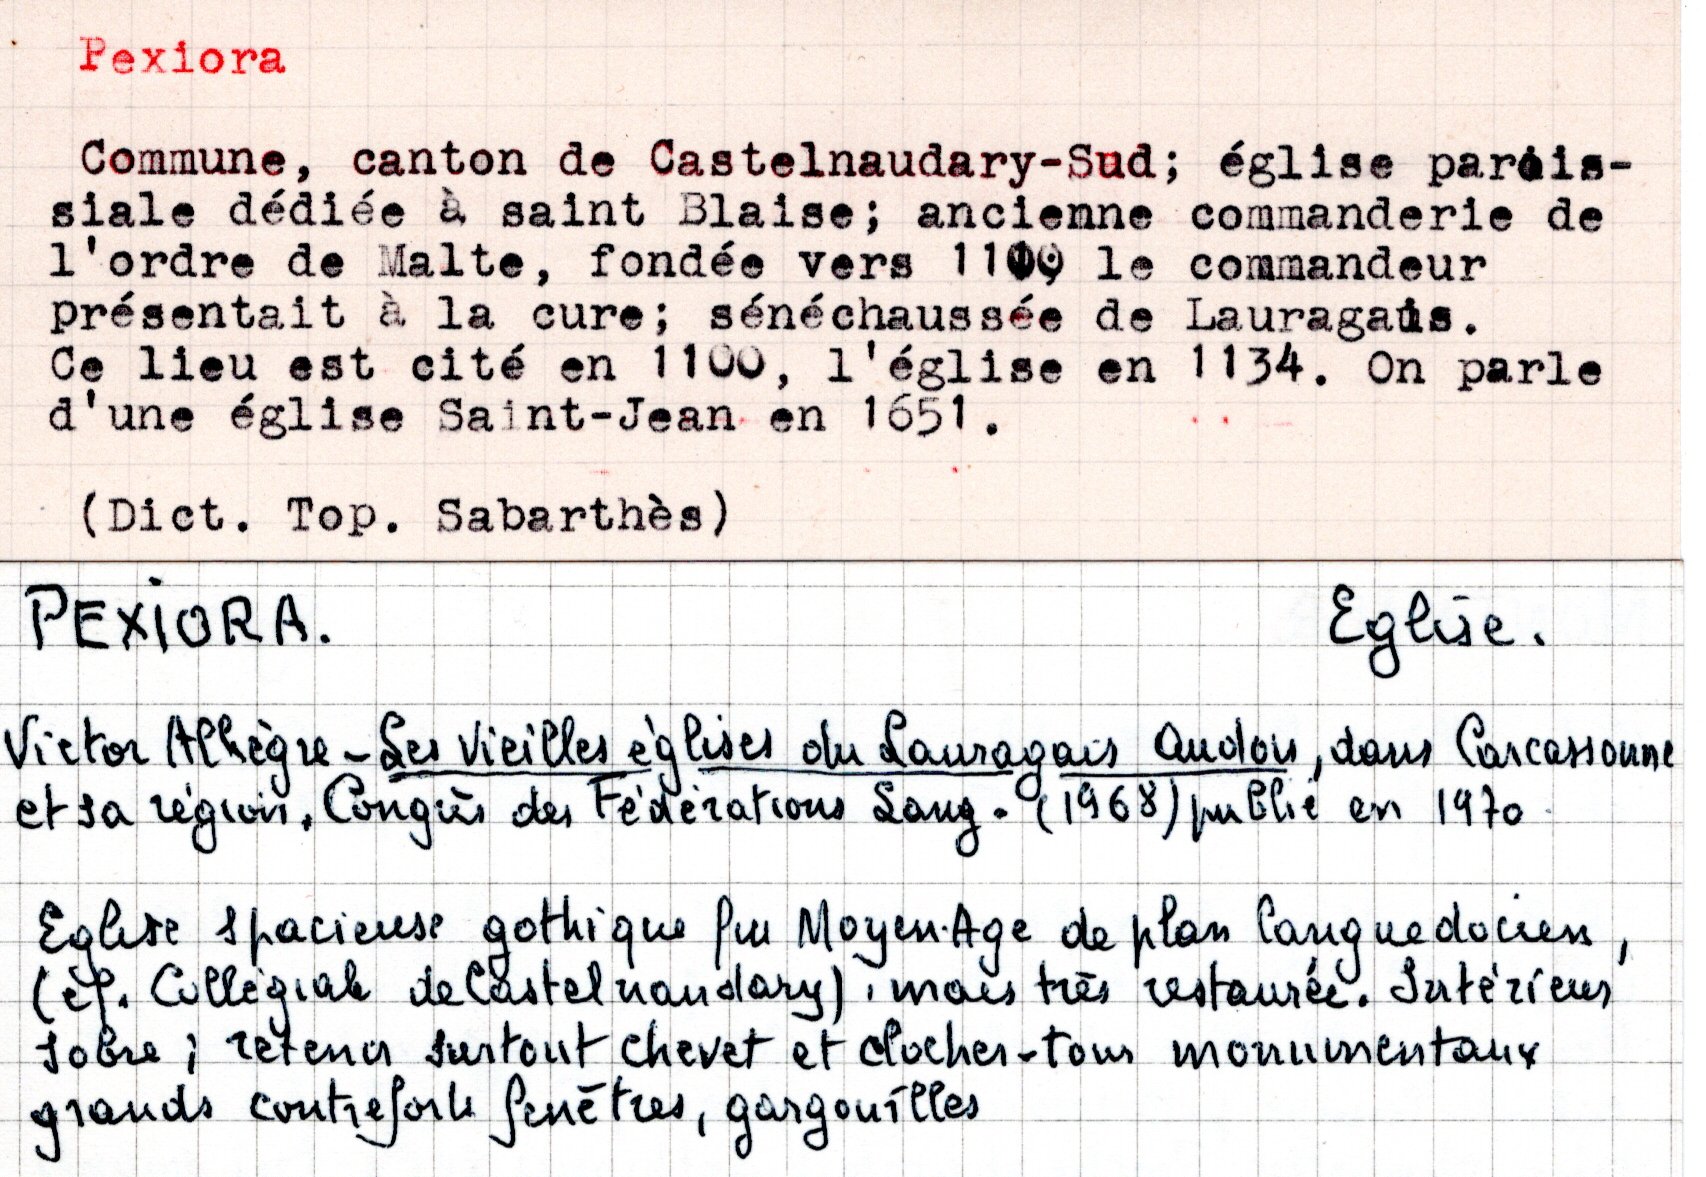 Pexiora
Commune, canton de Castelnaudary-Sud; église parois-
siale dédiée à saint Blaise; ancienne commanderie de
l'ordre de Malte, fondée vers le commandeur
présentait à la cure; sénéchaussée de Lauragais.
Ce lieu est cité en 1100, l'église en 1134. On parle
d'une église Saint-Jean en 1651.
(Dict. Top. Sabarthès)
PEXIORA. Eglise.
Victor Allègre - Les vieilles églises du Lauragais Audois, dans Carcassonne
et sa région. Congrès des Fédérations Lang. (1968) publié en 1970
Eglise spacieuse gothique fin Moyen-Age de plan languedocien,
(cf. Collégiale de Castelnaudary), mais très restaurée. Intérieur
sobre; retenir surtout chevet et clocher-tour monumentaux
grands contreforts fenêtres, gargouilles